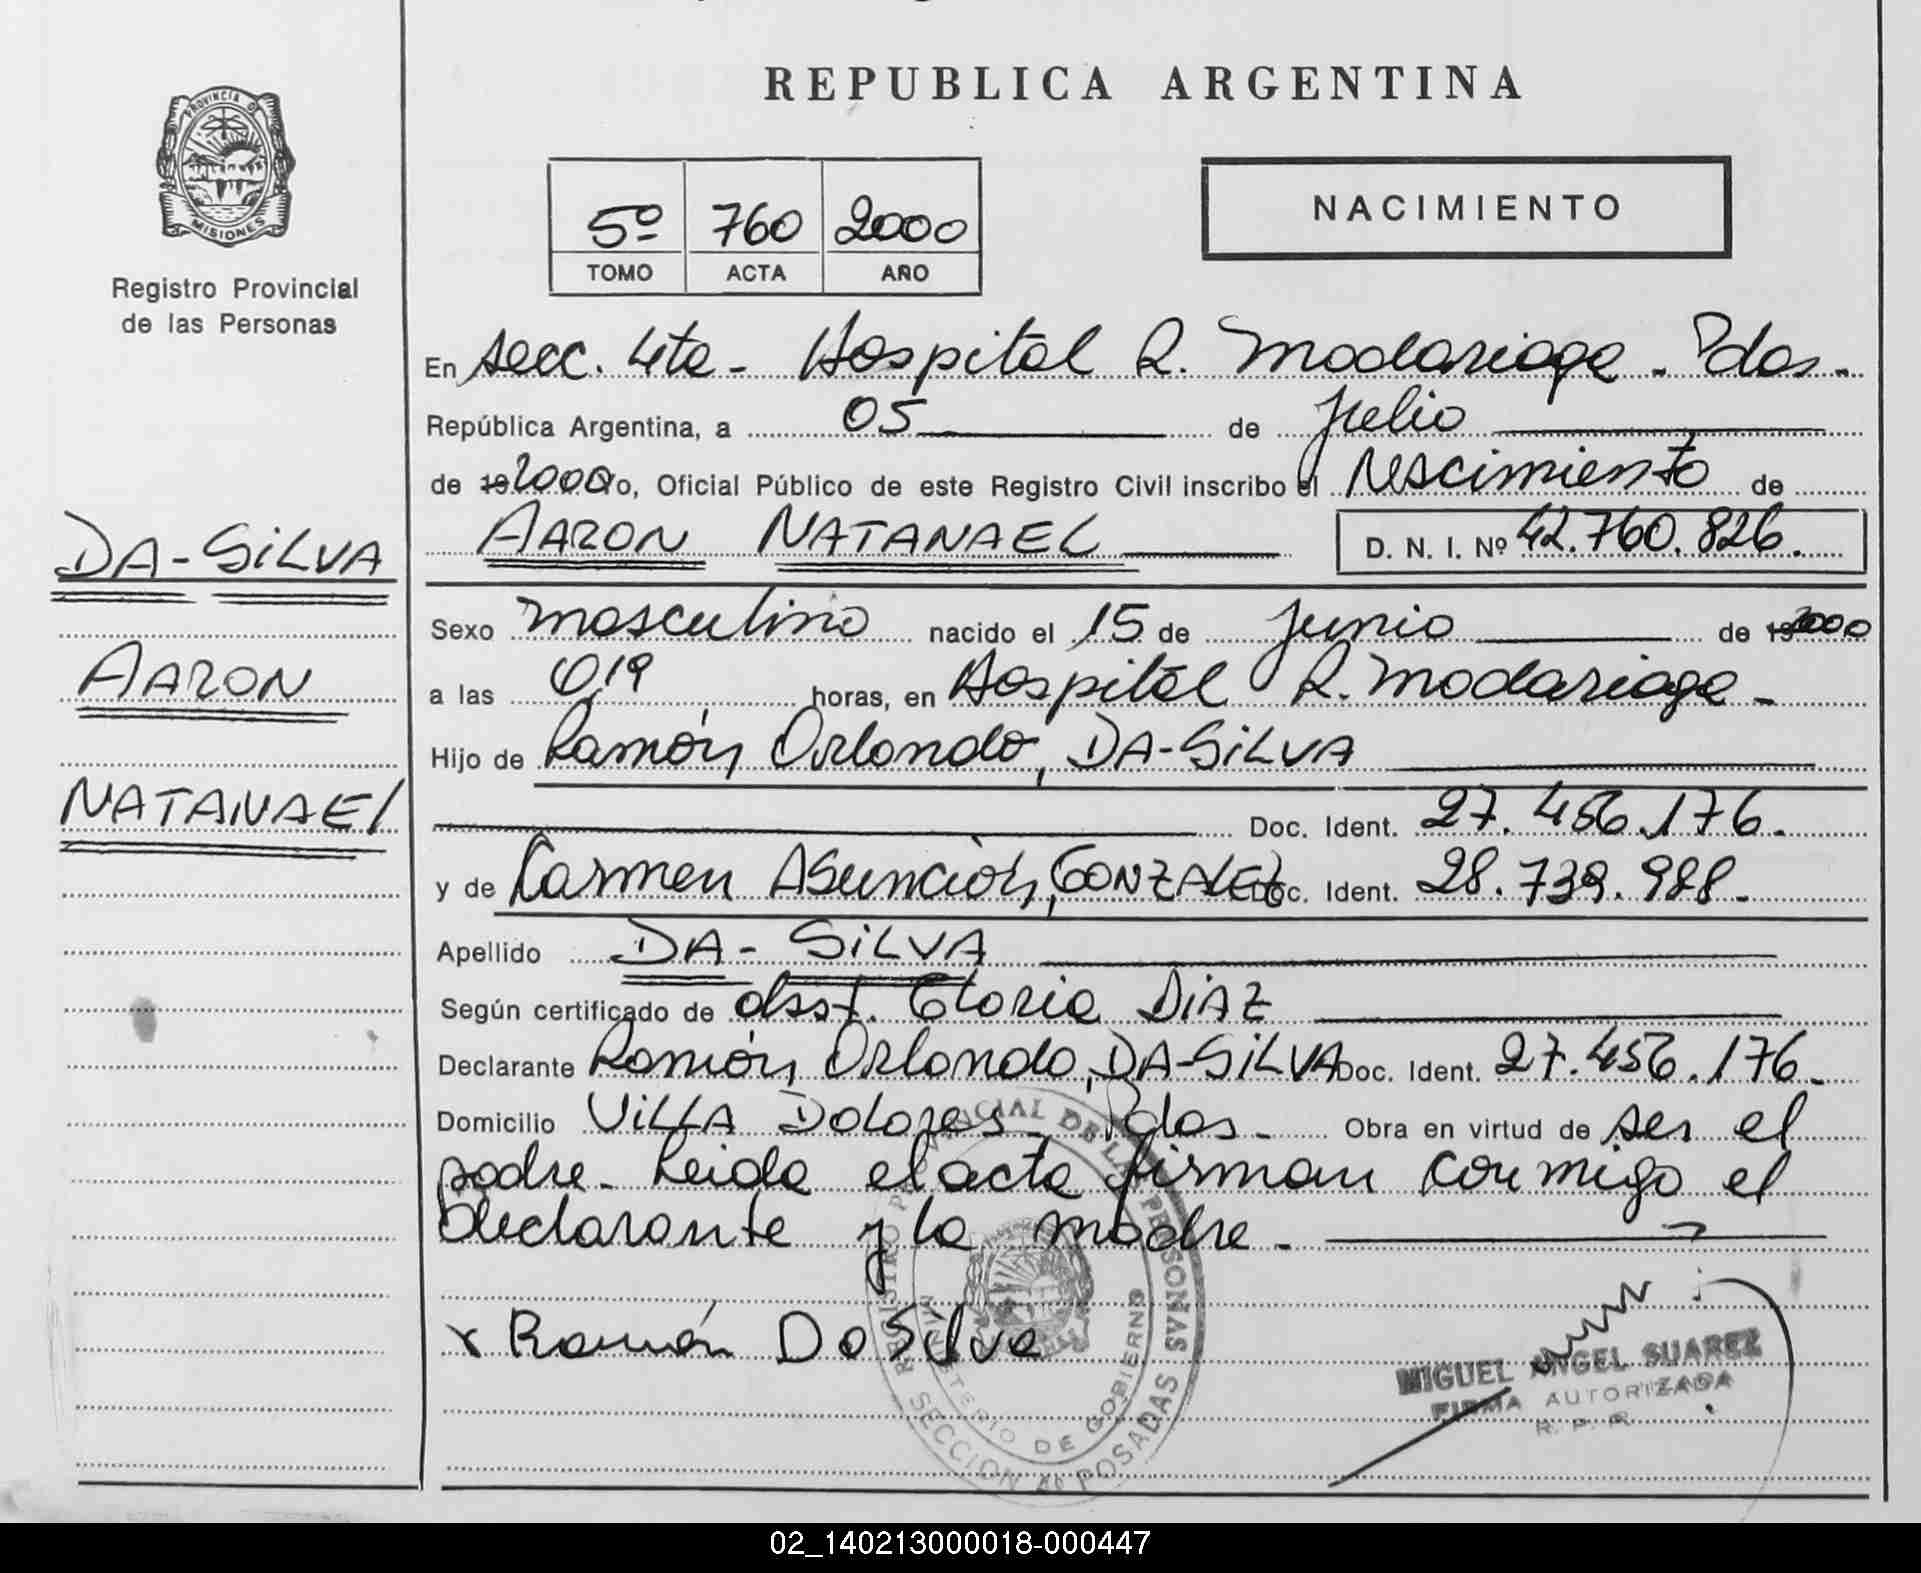 REPUBLICA ARGENTINA
PROVINCIA DE
MISIONES
Registro Provincial
de las Personas
5º 760 2000
TOMO ACTA AÑO
NACIMIENTO
En secc. 4ta - Hospital R. Madariaga - Pdas.
República Argentina, a 05 de Julio
de 19 2000 Yo, Oficial Público de este Registro Civil inscribo el Nascimiento de
AARON NATANAEL D. N. I. Nº 42.760.826.
DA-SILVA
AARON
NATANAEL
Sexo masculino nacido el 15 de Junio de 19 2000
a las 0,19 horas, en Hospital R. Madariaga -
Hijo de Ramón Orlando, DA-SILVA
Doc. Ident. 27.456.176.
y de Carmen Asunción, GONZALEZ Doc. Ident. 28.739.988.
Apellido DA-SILVA
Según certificado de obst. Gloria DIAZ
Declarante Ramón Orlando, DA-SILVA Doc. Ident. 27.456.176.
Domicilio VILLA Dolores - Pdas - Obra en virtud de ser el
padre - Leida el acta firman conmigo el
declarante y la madre -
x Ramón Da Silva
REGISTRO PROVINCIAL DE LAS PERSONAS
MINISTERIO DE GOBIERNO
SECCION 4ª POSADAS
MIGUEL ANGEL SUAREZ
FIRMA AUTORIZADA
R. P. P.
02_140213000018-000447